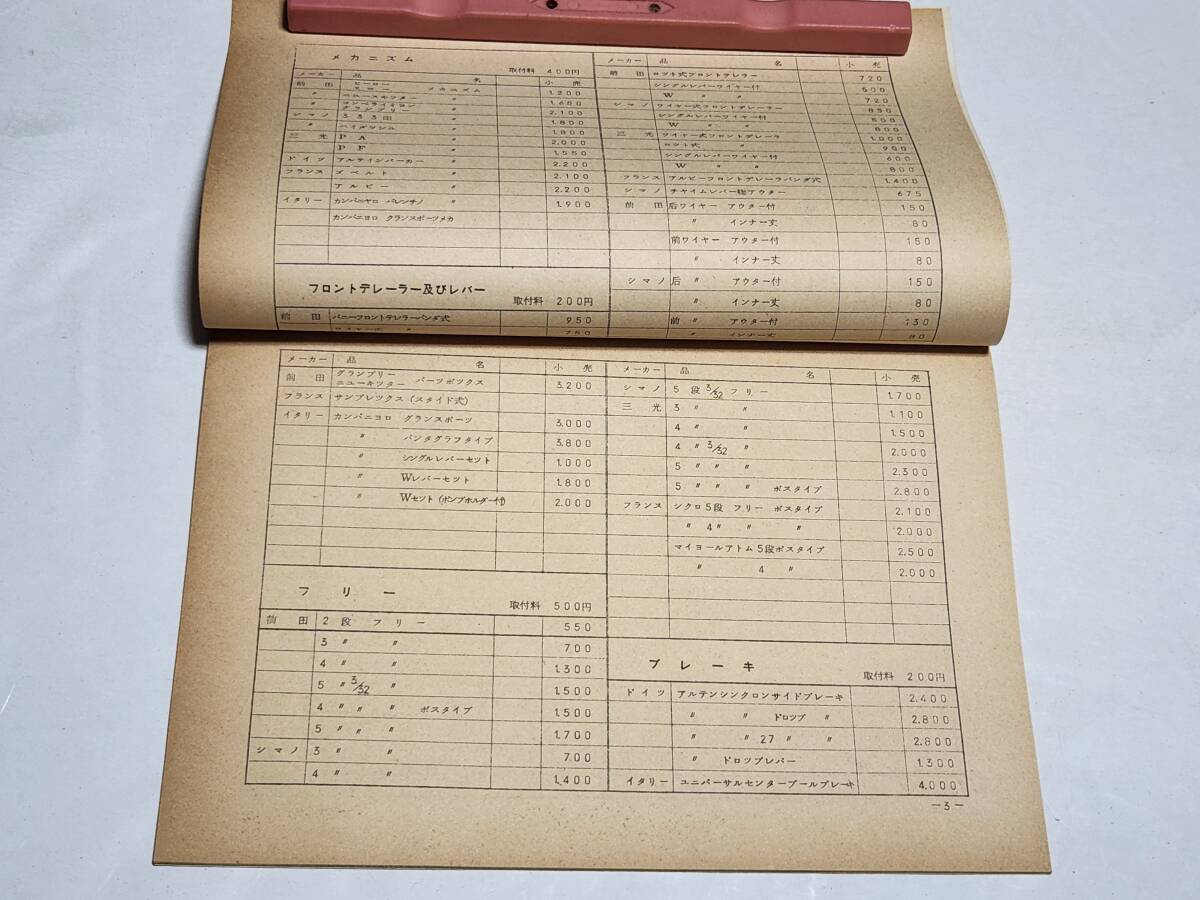 メカニズム
取付料 400円
メーカー 品 名 小売
前田 ヒーロー メカニズム 1.200
〃 ニュースキッター 〃 1.650
〃 2.100
シマノ 333 〃 1.800
〃 〃 1.800
三光 P A 〃 2.000
P F 〃 1.550
ドイツ アルテインバーカー 〃 2.200
フランス ズベルト 〃 2.100
アルビー 〃 2.200
イタリー カンパニヤロ バレンチノ 〃 1.900
カンパニヨロ クランスポーツメカ
フロントデレーラー及びレバー
取付料 200円
前田 バニーフロントテレラーバンダ式 950
750
メーカー 品 名 小売
前田 ロツド式フロントテレラー 720
シングルレバーワイヤー付 500
W 〃 720
シマノ ワイヤー式フロントデレーラー 850
シングルレバーワイヤー付 500
W 〃 800
三光 ワイヤー式フロントデレーラ 1.000
ロツト式 〃 900
シングルレバーワイヤー付 600
W 〃 〃 800
フランス アルビーフロントデレーラバンダ式 1.400
シマノ チャイムレバー総アウター 675
前田 后ワイヤー アウター付 150
〃 インナー丈 80
前ワイヤー アウター付 150
〃 インナー丈 80
シマノ 后 〃 アウター付 150
〃 インナー丈 80
前 〃 アウター付 130
〃 インナー丈 80
メーカー 品 名 小売
前田 グランプリー ニューキツター パーツボツクス 3.200
フランス サンプレツクス (スタイド式)
イタリー カンパニヨロ グランスポーツ 3.000
〃 パンタグラフタイプ 3.800
〃 シングルレバーセット 1.000
〃 Wレバーセット 1.800
〃 Wセット (ポンプホルダー付) 2.000
フリー
取付料 500円
前田 2段 フリー 550
3 〃 〃 700
4 〃 〃 1.300
5 〃 3/32 〃 1.500
4 〃 〃 〃 ボスタイプ 1.500
5 〃 〃 〃 1.700
シマノ 3 〃 〃 700
4 〃 〃 1.400
メーカー 品 名 小売
シマノ 5段 3/32 フリー 1.700
三光 3 〃 〃 1.100
4 〃 〃 1.500
4 〃 3/32 〃 2.000
5 〃 〃 〃 2.300
5 〃 〃 〃 ボスタイプ 2.800
フランス シクロ5段 フリー ボスタイプ 2.100
〃 4〃 〃 〃 2.000
マイヨールアトム 5段ボスタイプ 2.500
〃 4 〃 2.000
ブレーキ
取付料 200円
ドイツ アルテンシンクロンサイドブレーキ 2.400
〃 〃 ドロツプ 〃 2.800
〃 〃 27 〃 〃 2.800
〃 ドロツプレバー 1.300
イタリー ユニバーサルセンタープールブレーキ 4.000
—3—